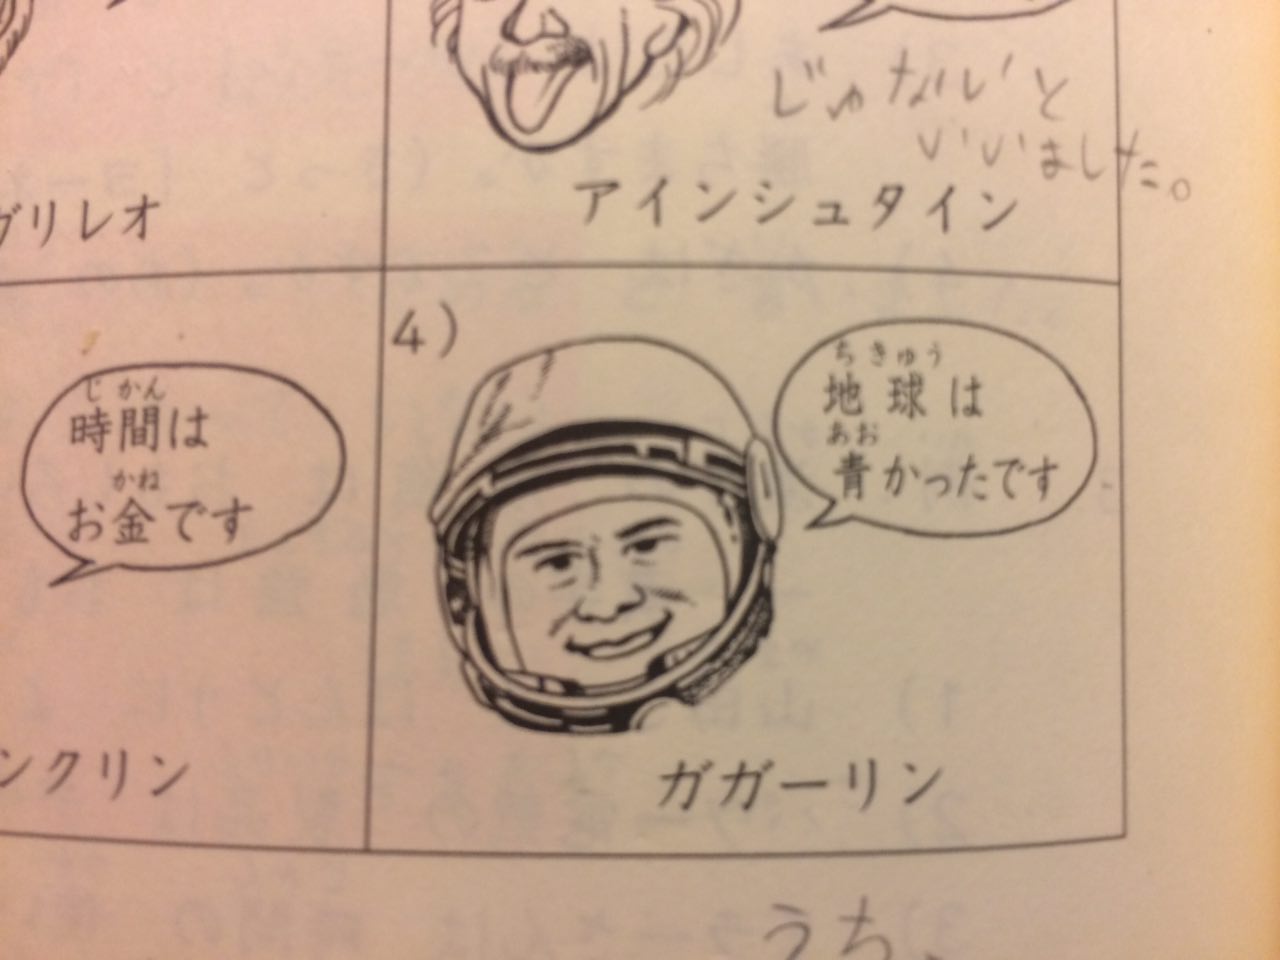 じゃないと
いいました。
グリレオ
アインシュタイン
じかん
時間は
かね
お金です
ンクリン
4)
ちきゅう
地球は
あお
青かったです
ガガーリン
うち、